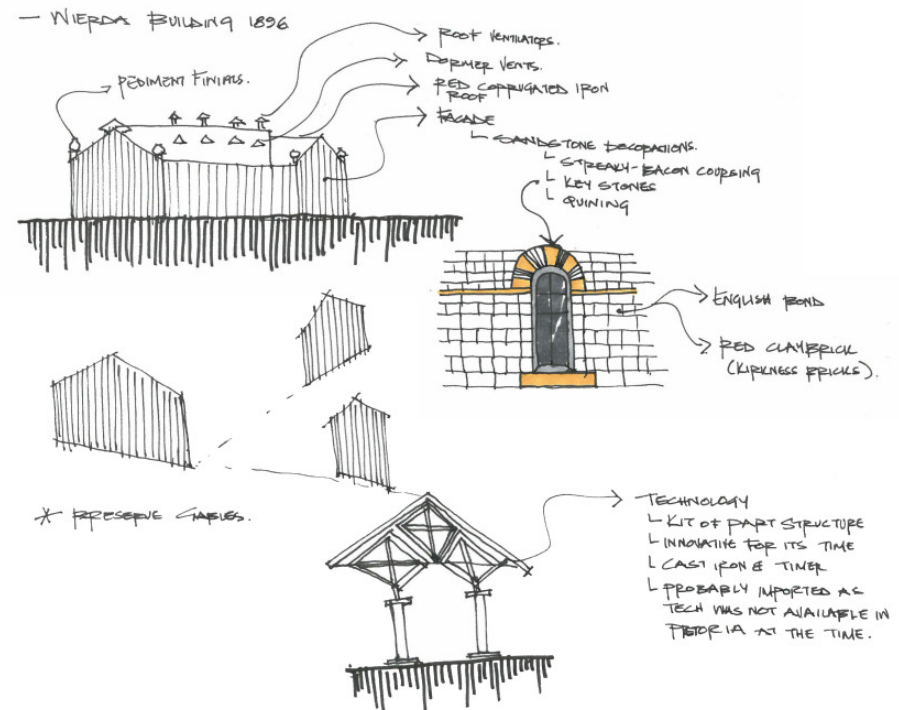 — WIERDA BUILDING 1896
PEDIMENT FINIALS.
ROOF VENTILATORS.
DORMER VENTS.
RED CORRUGATED IRON
ROOF
FACADE
SANDSTONE DECORATIONS.
STREAKY-BACON COURSING
KEY STONES
QUINING
ENGLISH BOND
RED CLAYBRICK
(KIRKNESS BRICKS).
* PRESERVE GABLES.
TECHNOLOGY
KIT OF PART STRUCTURE
INNOVATIVE FOR ITS TIME
CAST IRON & TIMER
PROBABLY IMPORTED AS
TECH WAS NOT AVAILABLE IN
PRETORIA AT THE TIME.